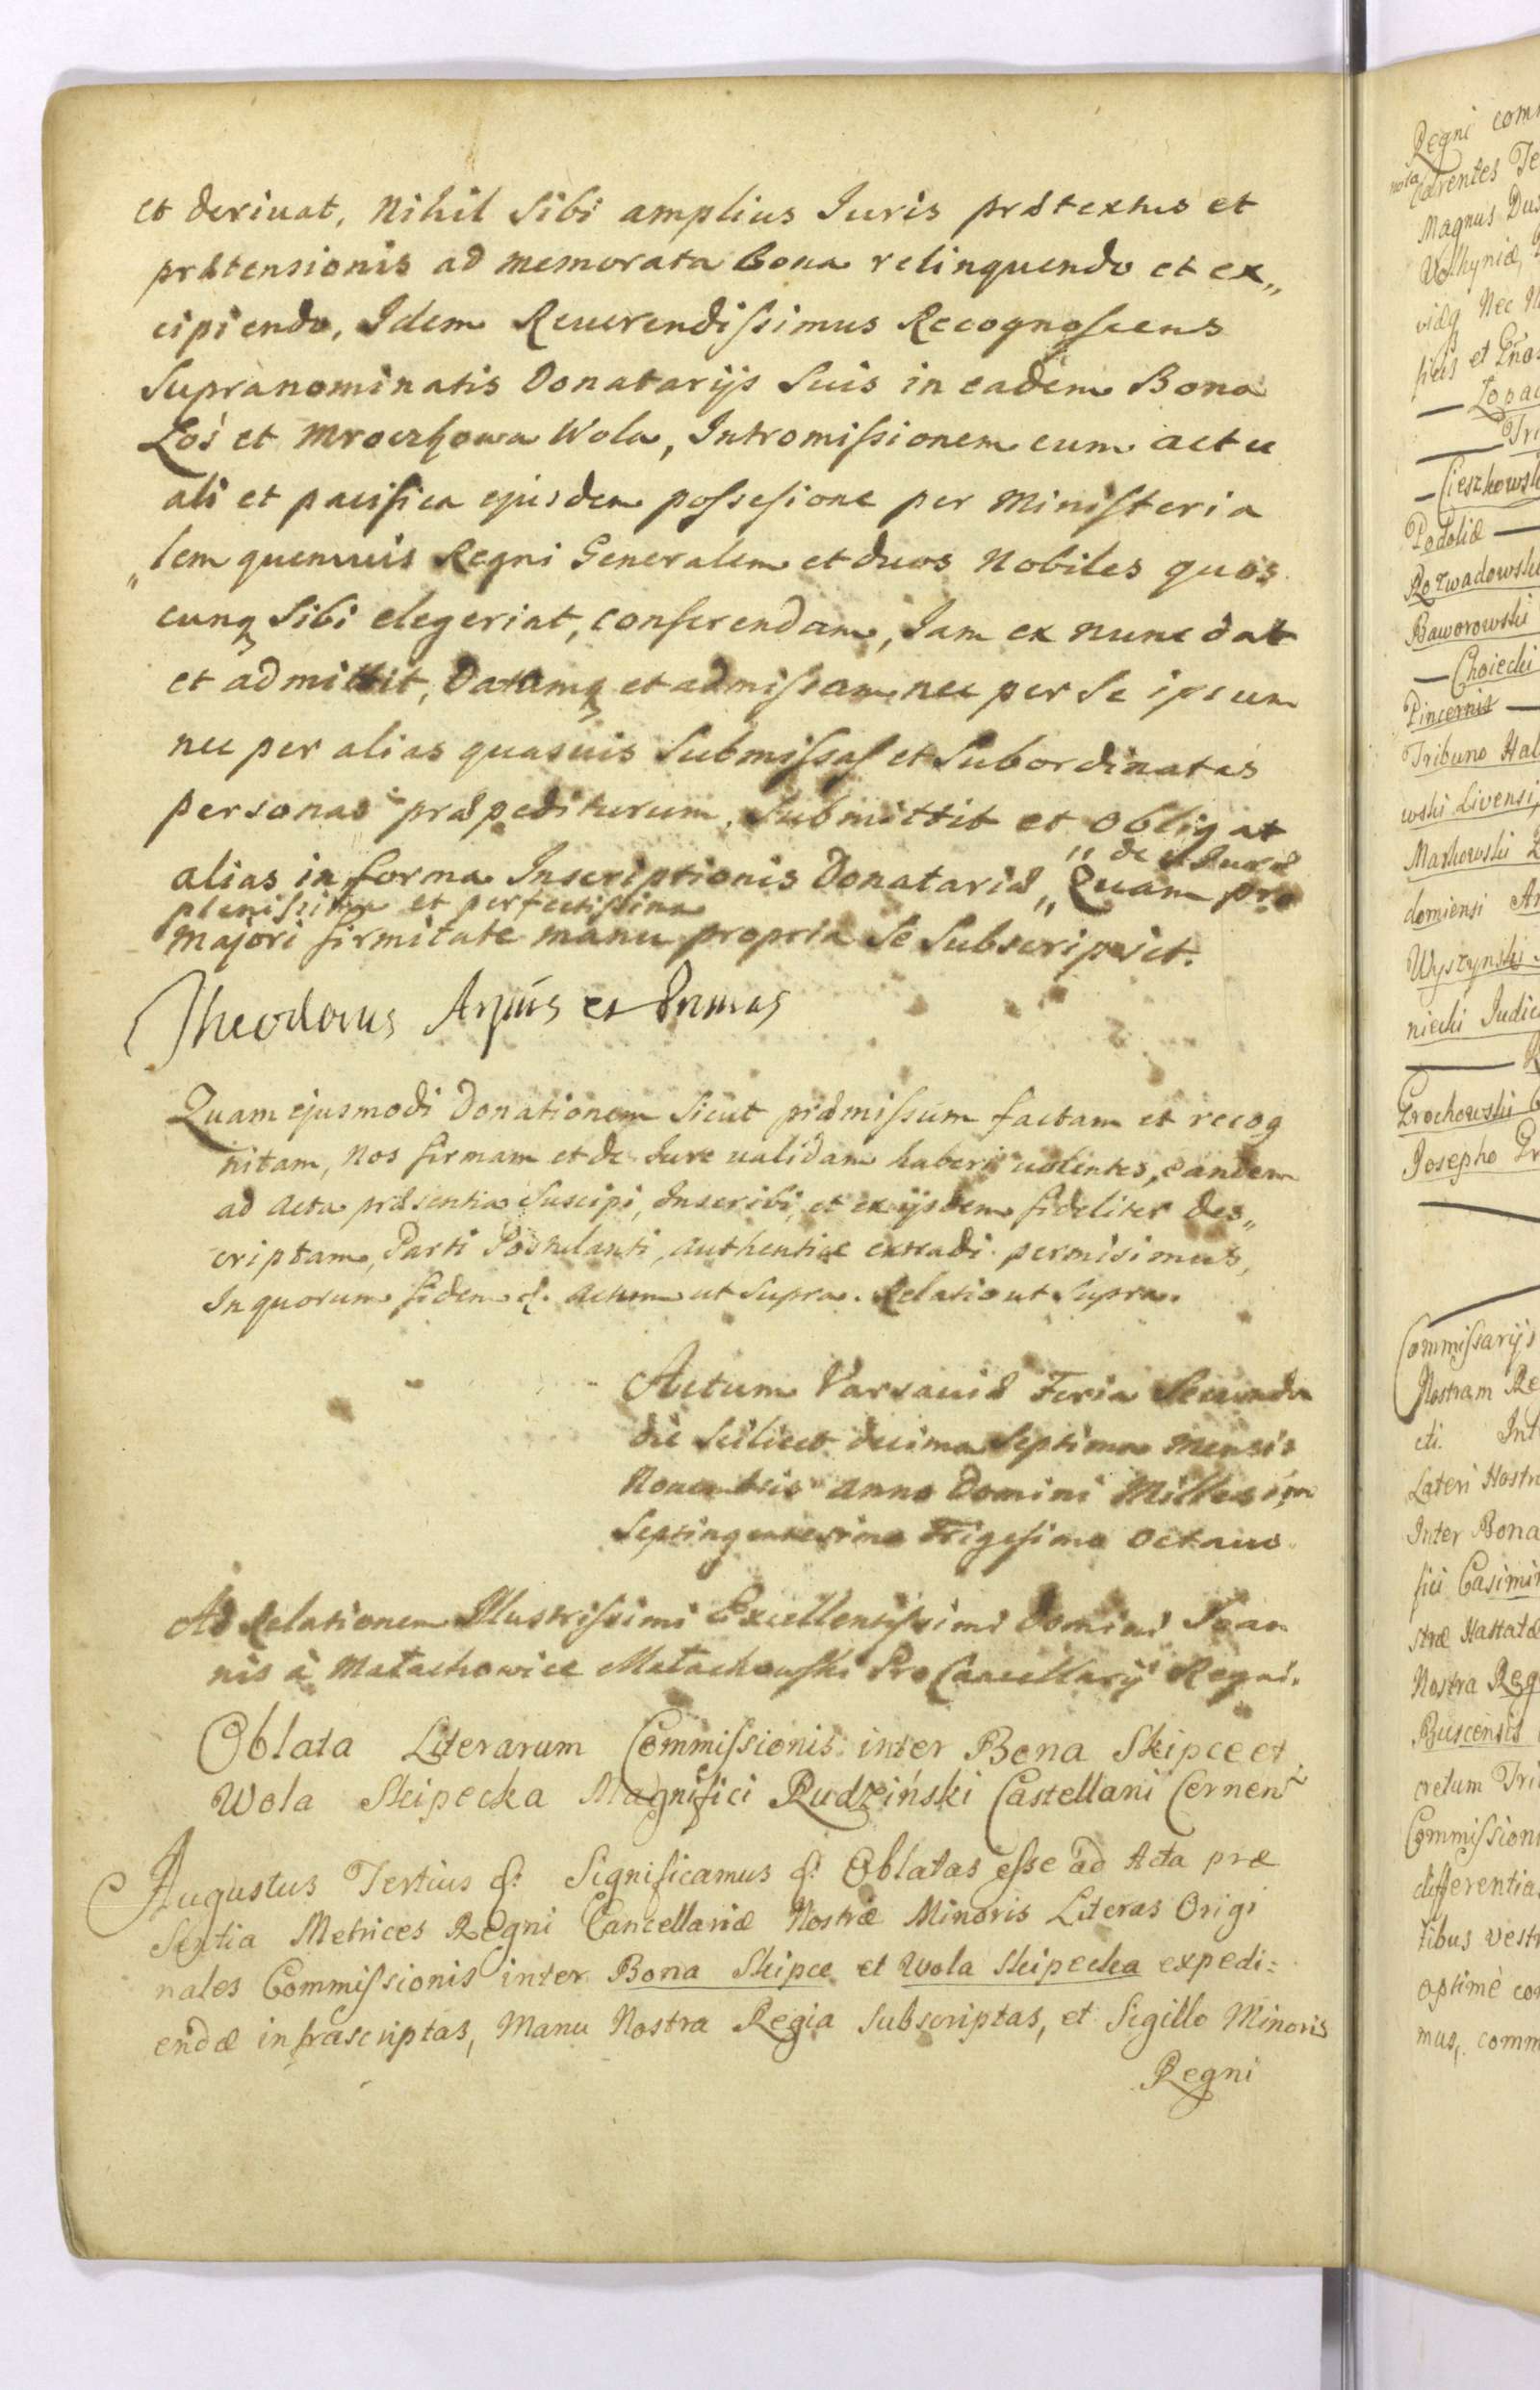 et derivat, Nihil Sibi amplius Juris prætextus et
prætensionis ad memorata Bona relinquendo et ex„
cipiendo, Idem Reuerendiſsimus Recognoſcens
Supranominatis Donatarijs Suis in eadem Bona
Łoś et Mroczkowa Wola, Intromiſsionem cum actu
ali et pacifica ejusdem poſseſione per Miniſteria
„lem quemuis Regni Generalem et duos Nobiles quos
cunq Sibi elegerint, conferendam, Jam ex nunc dat
et admittit, Datamq et admiſsam nec per Se ipsum
nec per alias quasuis Submiſsaſ et Subordinatas
personas præpediturum, Submittit et obligat
alias in forma Inscriptionis Donatariæ „ de Jure
pleniſsima et perfectiſsima „ Quam pro
majori firmitate manu propria Se Subscripsit.
Theodorus Arpũs et Primas
Quam ejusmodi Donationem Sicut præmiſsum factam et recog
nitam, Nos firmam et de Jure validam haberi uolentes, eandem
ad Acta præsentia Suscipi, Inscribi, et ex ijsdem fideliter des„
criptam, Parti Postulanti, authentice extradi permisimus,
In quorum fidem &. Actum ut Supra. Relatio ut Supra.
Actum Varsaviæ Feria Secunda
die Scilicet decima Septima Mensis
Nouembris Anno Domini Millesimo
Septingentesimo Trigeſimo Octauo.
Ad Relationem Illustriſsimi Excellentiſsimi Domini Joan
nis à Małachowice Małachowſki Pro Cancellarij Regni.
Oblata Literarum Commiſsionis inter Bona Skipce et
Wola Skipecka Magnifici Rudziński Castellani Cernen̅
Augustus Tertius &: Significamus &: Oblatas eſse ad Acta præ
sentia Metrices Regni Cancellariæ Nostræ Minoris Literas Origi
nales Commiſsionis inter Bona Skipce et Wola Skipecka expedi=
endæ infrascriptas, Manu Nostra Regia subscriptas, et Sigillo Minoris
Regni
Regni
carentes
Magnus
Volhyniæ,
vidq Nec
et
Cieszkowski
Podoliæ
Rozwadowski
Baworowski
Choiecki
Pincernis
Tribuno
wski Livensi,
Markowski
domiensi
Wyszynski
niecki Judic
Grochowski
Josepho
Commiſsarijs
Nostram
cti. Int
Lateri Nostr
Inter Bona
fici Casimir
stræ
Nostra Reg
Buscensis
cretum Tri
Commiſsion
differentia
tibus vestr
optimè con
mus, comm